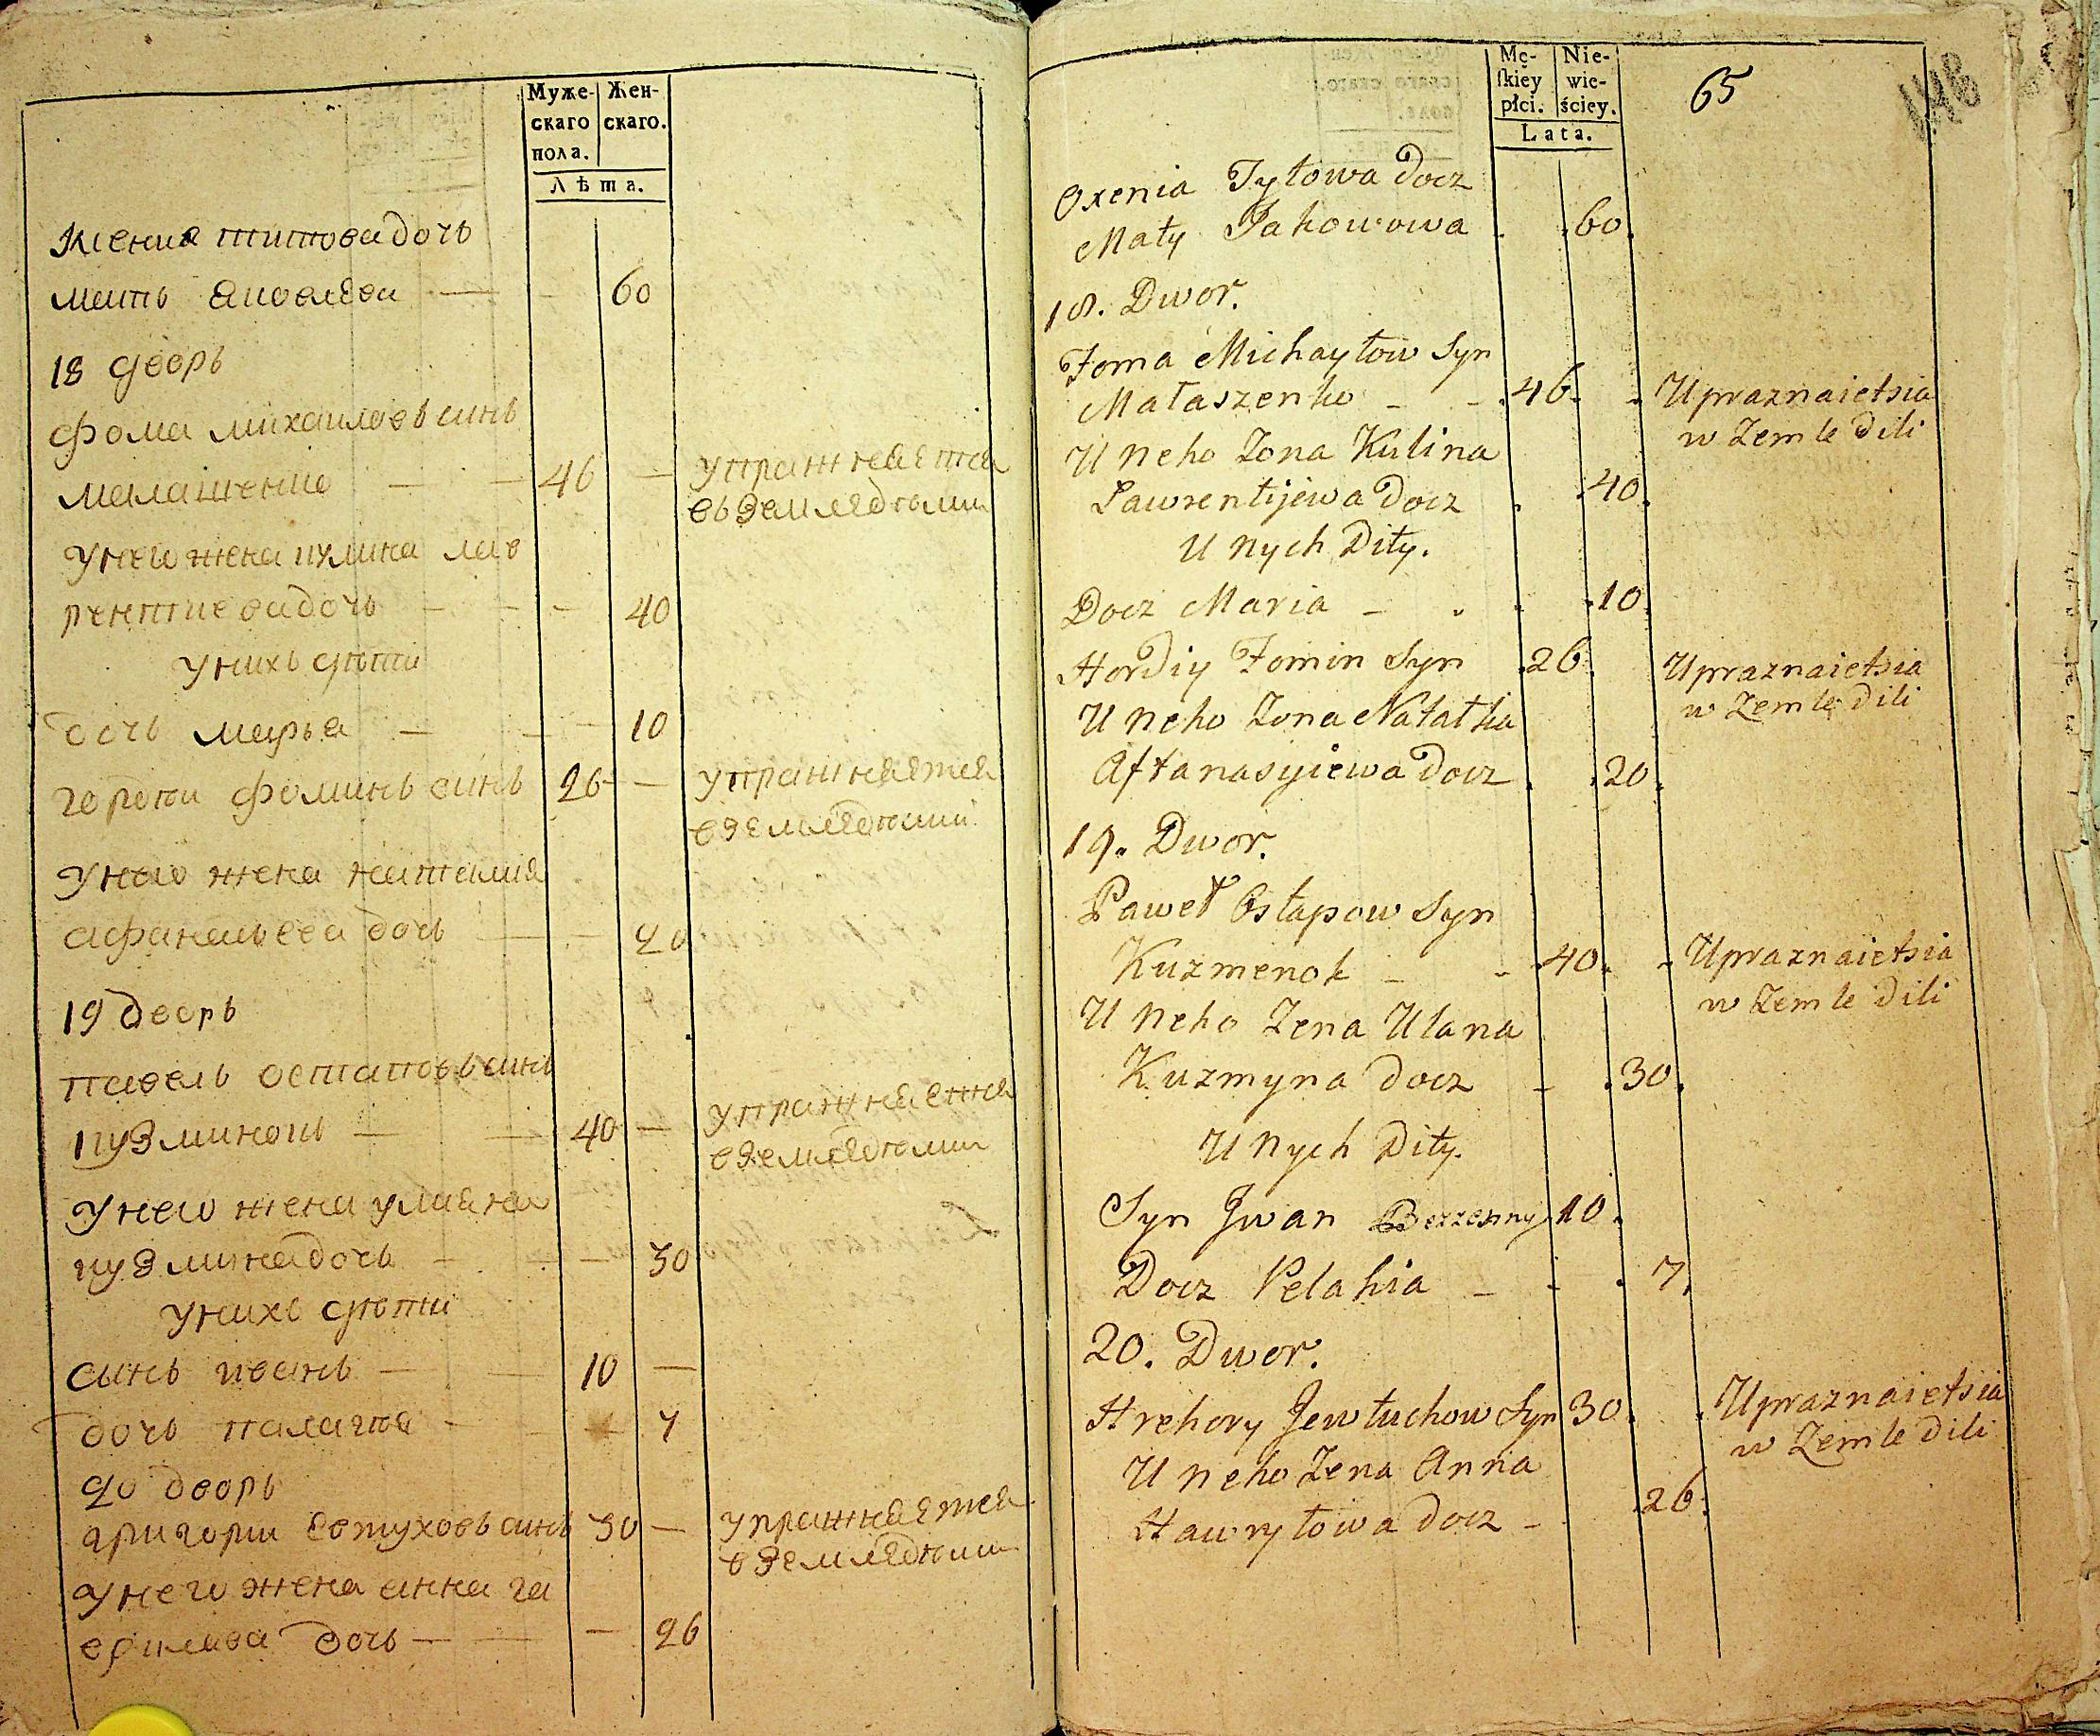 Муже- Жен-
скаго скаго.
пола.
Лѣта.
Ксения титова дочь
мать яковлева — - 60
18 дворъ
фома михаиловъ синъ
малашенко — - 46 — упражняется
въ земледѣлии
унего жена кулина лав
рентиева дочь - - - 40
унихъ дѣти
дочь марья — - - 10
гордѣи фоминъ синъ 26 — упражняется
в земледѣлии
унего жена наталия
афанасьева дочь — - 20
19 дворъ
павелъ остаповъ синъ
кузминокъ — - 40 — упражняется
в земледѣлии
унего жена улияна
кузмина дочь - - — 30
унихъ дѣти
сынъ иванъ — - 10 —
дочь палагѣя - - - 7
20 дворъ
григории евтуховъ синъ 30 — упражняется
в земледѣлии
унего жена анна га
врилова дочь — - - 26
Mę- Nie-
skiey wie-
płci. ściey.
Lata.
65
148
Oxenia Tytowa Docz
Maty Jakowowa . . 60.
18. Dwor.
Foma Michayłow Syn
Małaszenko - - . 46. - Upraznaietsia
w Zemle Dili
U neho Zona Kulina
Lawrentijewa Docz . . 40.
U nych Dity.
Docz Maria - . . . 10
Hordiy Fomin Syn . 26. Upraznaietsia
w Zemle Dili
U neho Zona Natałka
Aftanasyiewa Docz . . 20.
19. Dwor.
Paweł Ostapow Syn
Kuzmenok - - . 40. - Upraznaietsia
w Zemle Dili
U neho Zena Ulana
Kuzmyna Docz - . 30.
U nych Dity.
Syn Jwan Bezzenny 10.
Docz Pelahia - . . 7.
20. Dwor.
Hrehory Jewtuchow Syn 30. . Upraznaietsia
w Zemle Dili
U neho Zena Anna
Hawryłowa Docz - . 26.